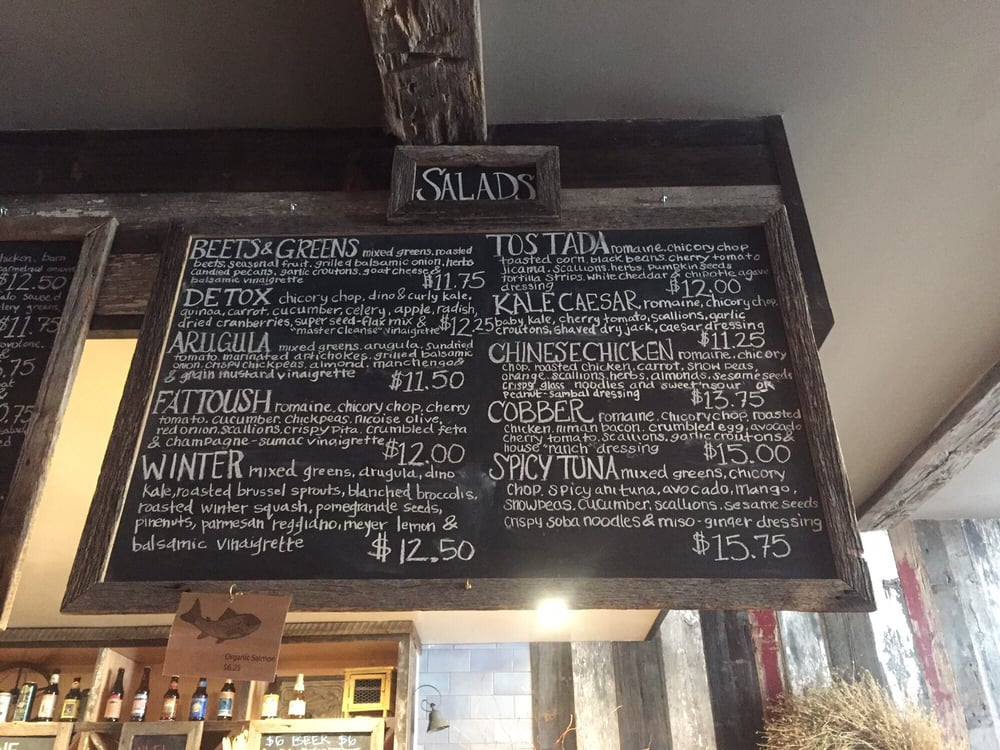 SALADS
BEETS & GREENS mixed greens, roasted
beets, seasonal fruit, grilled balsamic onion, herbs
candied pecans, garlic croutons, goat cheese &
balsamic vinaigrette $11.75
DETOX chicory chop, dino & curly kale,
quinoa, carrot, cucumber, celery, apple, radish,
dried cranberries, super seed-flax mix &
"master cleanse" vinaigrette $12.25
ARUGULA mixed greens, arugula, sundried
tomato, marinated artichokes, grilled balsamic
onion, crispy chickpeas, almond, manchengo &
& grain mustard vinaigrette $11.50
FATTOUSH romaine, chicory chop, cherry
tomato, cucumber, chickpeas, nicoise olive,
red onion, scallions, crispy pita, crumbled feta
& champagne-sumac vinaigrette $12.00
WINTER mixed greens, arugula, dino
kale, roasted brussel sprouts, blanched broccolis,
roasted winter squash, pomegranate seeds,
pinenuts, parmesan reggiano, meyer lemon &
balsamic vinaigrette $12.50
TOSTADA romaine, chicory chop
toasted corn, black beans, cherry tomato
jicama, scallions, herbs, pumpkin seeds
tortilla strips, white cheddar & chipotle agave
dressing $12.00
KALE CAESAR, romaine, chicory chop,
baby kale, cherry tomato, scallions, garlic
croutons, shaved dry jack, caesar dressing
$11.25
CHINESE CHICKEN romaine, chicory
chop, roasted chicken, carrot, snow peas,
orange, scallions, herbs, almonds, sesame seeds
crispy glass noodles and sweet 'n sour or
peanut-sambal dressing $13.75
COBBER romaine, chicory chop, roasted
chicken, niman bacon, crumbled egg, avocado
cherry tomato, scallions, garlic croutons &
house "ranch" dressing $15.00
SPICY TUNA mixed greens, chicory
chop, spicy ahi tuna, avocado, mango,
snowpeas, cucumber, scallions, sesame seeds
crispy soba noodles & miso-ginger dressing
$15.75
chicken, barn
$12.50
$11.75
Organic Salmon
$6.25
$6 BEER $6